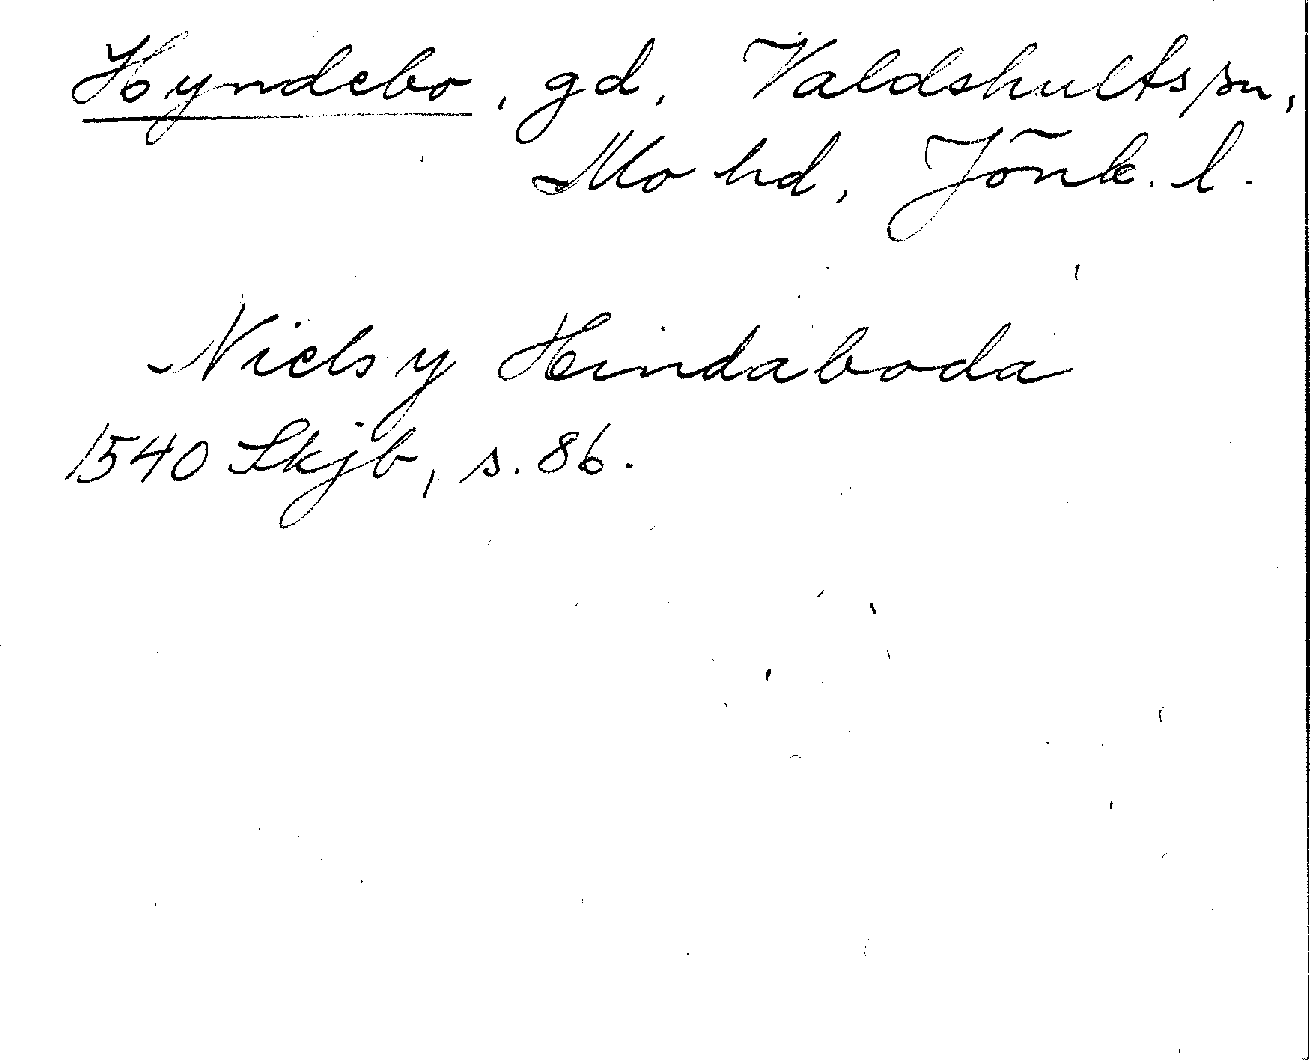 Hyndebo, gd, Valdshults sn,
Mo hd, Jönk. l.
Niels y Hindaboda
1540 Skjb, s. 86.